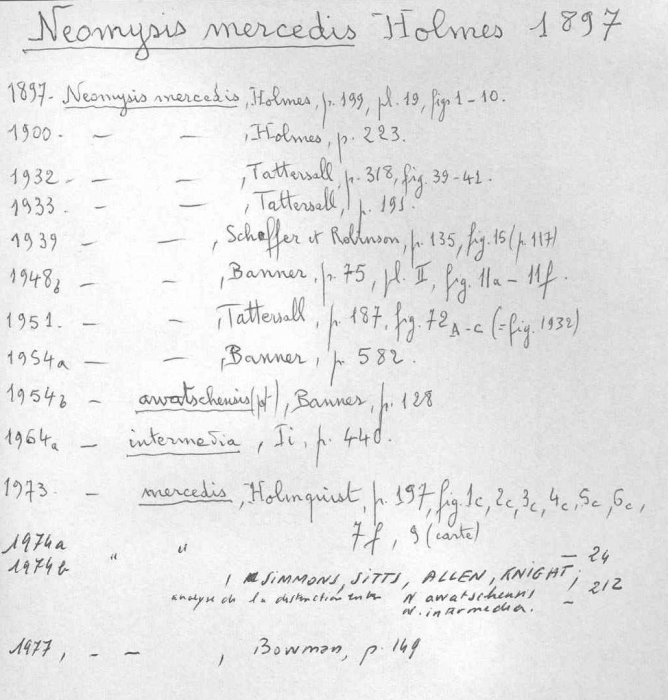 Neomysis mercedis Holmes 1897
1897. Neomysis mercedis, Holmes, p. 199, pl. 19, figs 1-10.
1900. — — , Holmes, p. 223.
1932. — — , Tattersall, p. 318, fig. 39-41.
1933. — — , Tattersall, p. 191.
1939 — — , Schaffer et Robinson, p. 135, fig. 15 (p. 117)
1948b — — , Banner, p. 75, pl. II, fig. 11a - 11f.
1951. — — , Tattersall, p. 187, fig. 72A-C (=fig. 1932)
1954a — — , Banner, p. 582.
1954b — awatschensis (pt), Banner, p. 128
1964a — intermedia, Ii, p. 440.
1973. — mercedis, Holmquist, p. 197, fig. 1c, 2c, 3c, 4c, 5c, 6c,
7f, 9 (carte)
1974a " " — 24
1974b , SIMMONS, SITTS, ALLEN, KNIGHT, — 212
analyse de la distinction entre N awatschensis
N. intermedia.
1977, — — , Bowman, p. 149